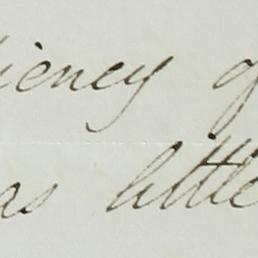 iency of
as little